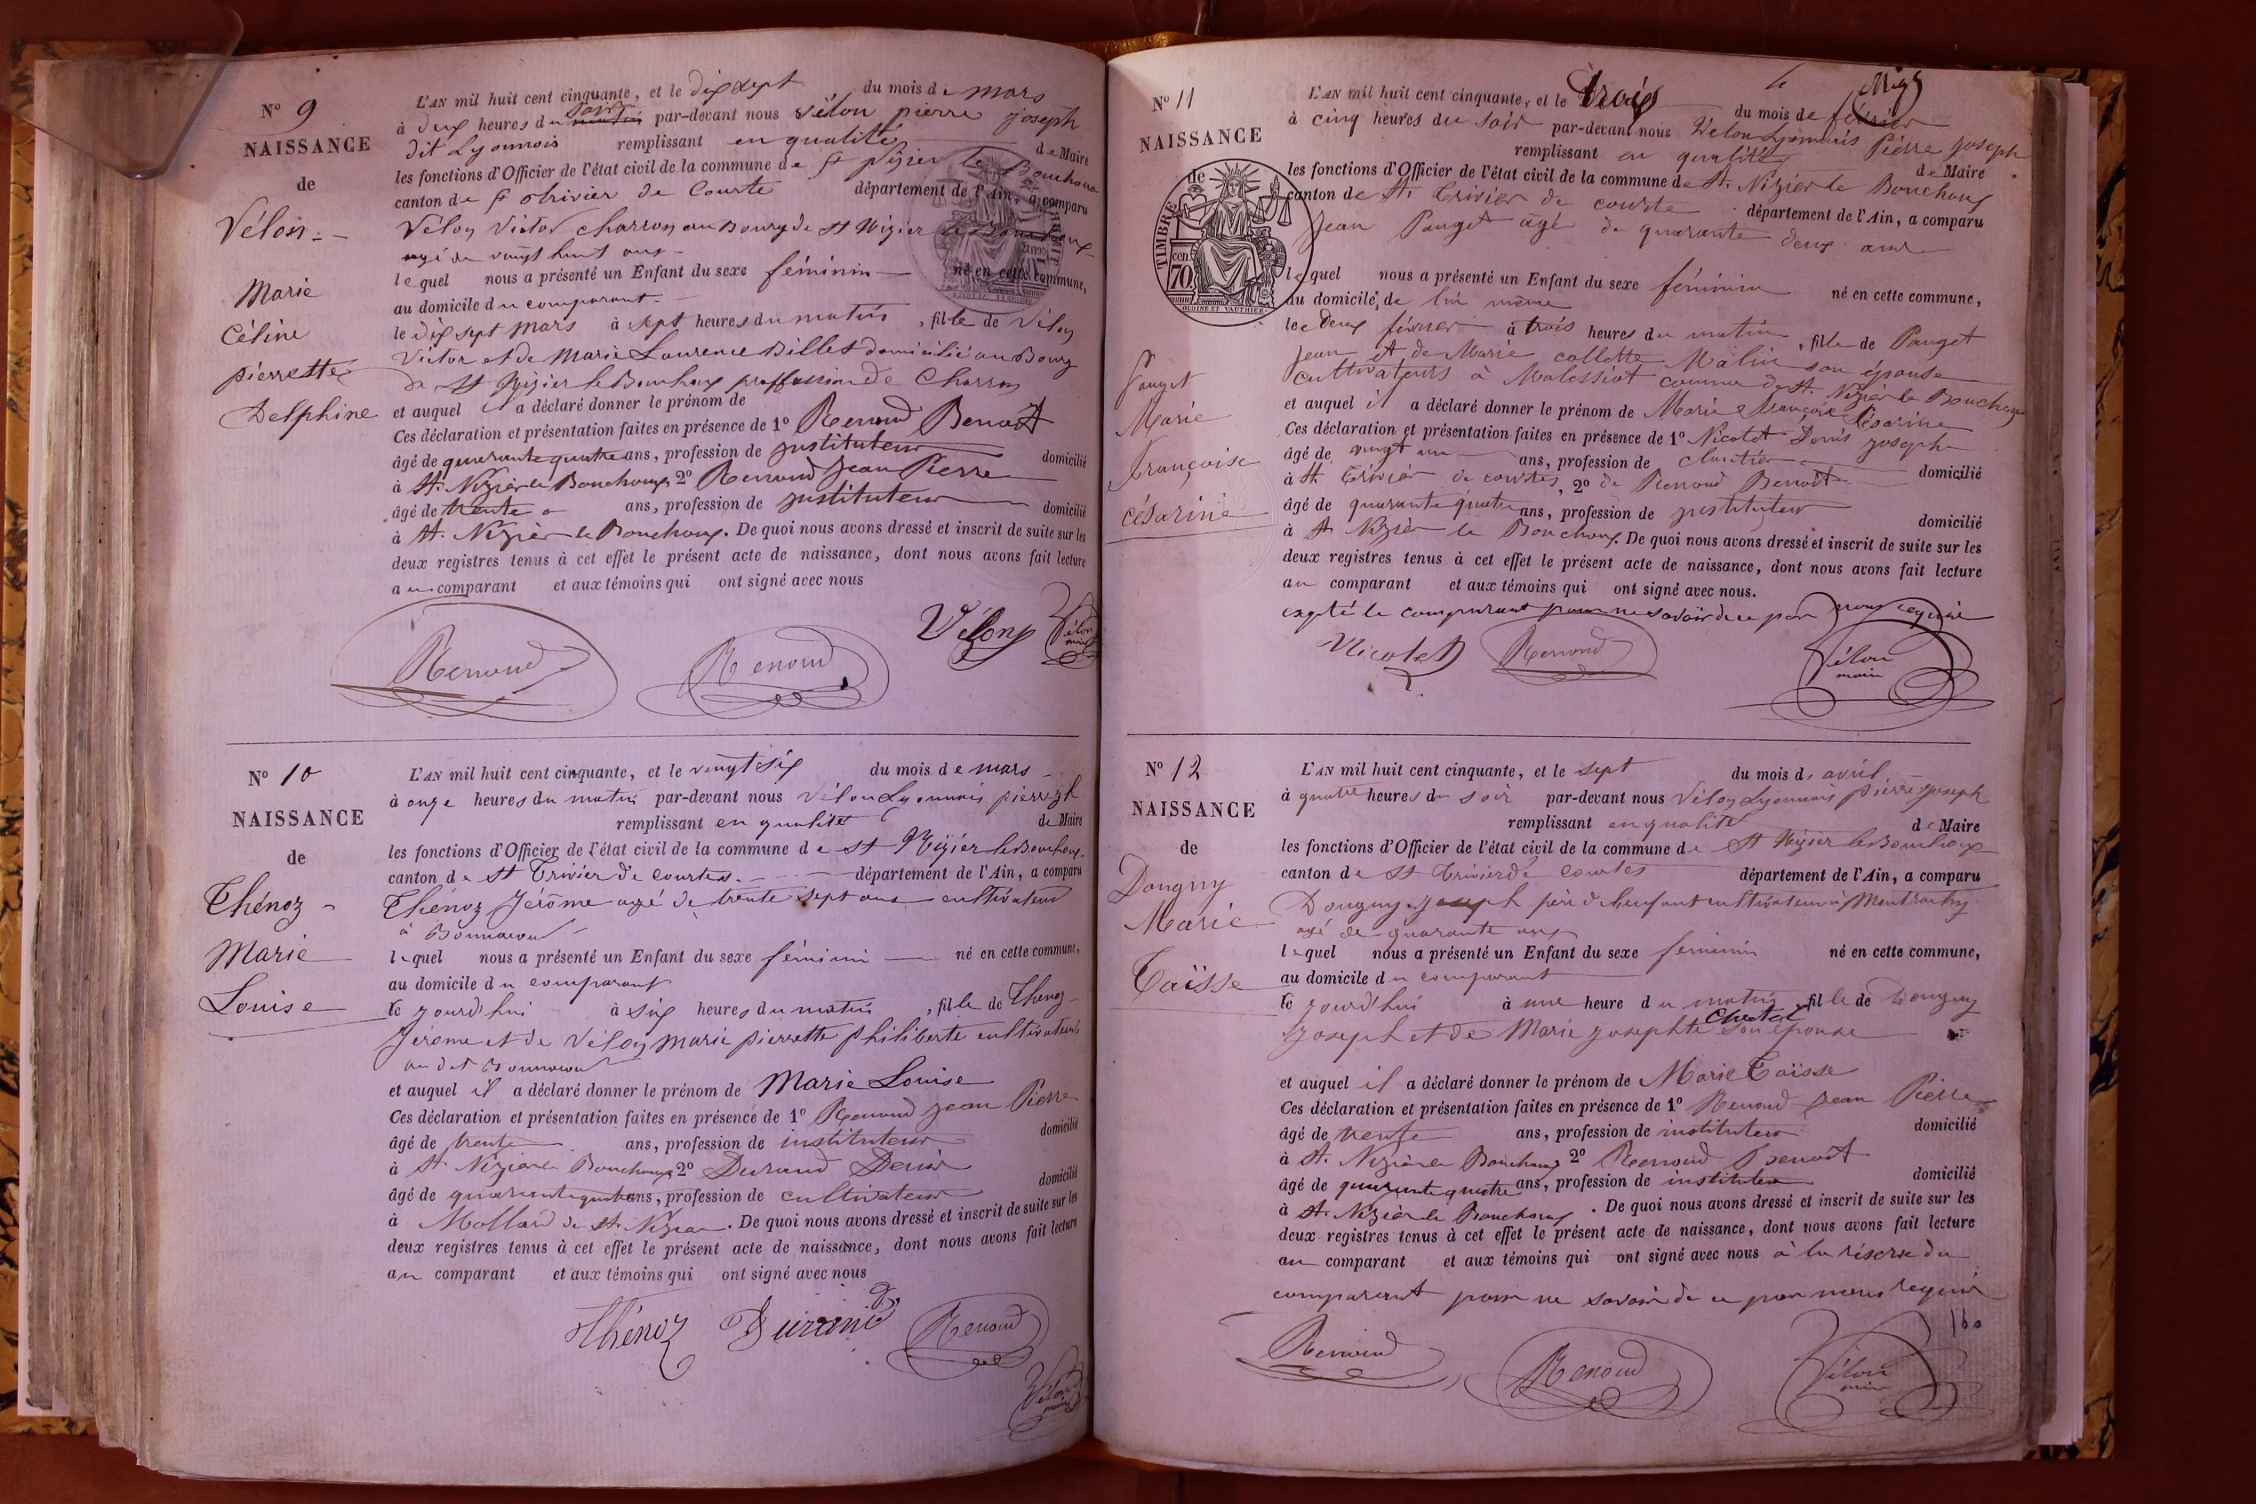 N° 9
NAISSANCE
de
Vélon
Marie
Céline
pierrette
Delphine
L'AN mil huit cent cinquante, et le dix sept du mois de mars
à deux heures du soir par-devant nous vélon pierre joseph
dit Lyonnois remplissant en qualité de Maire
les fonctions d'Officier de l'état civil de la commune de st Nizier le Bouchoux
canton de st trivier de Courte département de l'Ain, a comparu
Vélon Victor charron au Bourg de St Nizier le Bouchoux
agé de vingt huit ans
lequel nous a présenté un Enfant du sexe féminin né en cette commune,
au domicile du comparant
le dix sept mars à sept heures du matin, fille de Vélon
Victor et de Marie Laurence Billet domicilié au Bourg
de St Nizier le Bouchoux proffession de Charron
et auquel il a déclaré donner le prénom de
Ces déclaration et présentation faites en présence de 1° Renoud Benoît
âgé de quarante quatre ans, profession de instituteur domicilié
à St. Nizier le Bouchoux, 2° Renoud Jean Pierre
âgé de trente ans, profession de instituteur domicilié
à St. Nizier le Bouchoux. De quoi nous avons dressé et inscrit de suite sur les
deux registres tenus à cet effet le présent acte de naissance, dont nous avons fait lecture
au comparant et aux témoins qui ont signé avec nous
Renoud Renoud Vélon Vélon
maire
N° 10
NAISSANCE
de
Thénoz
Marie
Louise
L'AN mil huit cent cinquante, et le vingt six du mois de mars
à onze heures du matin par-devant nous Vélon Lyonnais pierre jh
remplissant en qualité de Maire
les fonctions d'Officier de l'état civil de la commune de St Nizier le Bouchoux
canton de St Trivier de courtes département de l'Ain, a comparu
Thénoz Jérôme agé de trente sept ans cultivateur
à
lequel nous a présenté un Enfant du sexe féminin né en cette commune,
au domicile du comparant
le jourd'hui à six heures du matin, fille de Thenoz
Jérome et de Vélon marie pierrette philiberte cultivateurs
au dit
et auquel il a déclaré donner le prénom de Marie Louise
Ces déclaration et présentation faites en présence de 1° Renoud Jean Pierre
âgé de trente ans, profession de instituteur domicilié
à St. Nizier le Bouchoux 2° Durand Denis
âgé de quarante quatre ans, profession de cultivateur domicilié
à Mollard de St. Nizier. De quoi nous avons dressé et inscrit de suite sur les
deux registres tenus à cet effet le présent acte de naissance, dont nous avons fait lecture
au comparant et aux témoins qui ont signé avec nous
Thénoz Durand Renoud
Vélon
maire
N° 11
NAISSANCE
de
TIMBRE
70 cen
OUDINE ET VAUTHIER
Pauget
Marie
Françoise
césarine
L'AN mil huit cent cinquante, et le trois du mois de février
à cinq heures du soir par-devant nous Vélon Lyonnais Pierre Joseph
remplissant en qualité de Maire
les fonctions d'Officier de l'état civil de la commune de St. Nizier le Bouchoux
canton de St. Trivier de courtes département de l'Ain, a comparu
Jean Pauget âgé de quarante deux ans
lequel nous a présenté un Enfant du sexe féminin né en cette commune,
au domicile de lui même
le deux février à trois heures du matin, fille de Pauget
Jean et de Marie collette Malin son épouse
cultivateurs à Malessiat commune de St. Nizier le Bouchoux
et auquel il a déclaré donner le prénom de Marie Françoise Césarine
Ces déclaration et présentation faites en présence de 1° Nicolet Denis Joseph
âgé de vingt un ans, profession de domicilié
à St. Trivier de courtes, 2° de Renoud Benoît
âgé de quarante quatre ans, profession de instituteur domicilié
à St Nizier le Bouchoux. De quoi nous avons dressé et inscrit de suite sur les
deux registres tenus à cet effet le présent acte de naissance, dont nous avons fait lecture
au comparant et aux témoins qui ont signé avec nous.
expté le comparant pour ne savoir de ce par nous requis
Nicolet Renoud Vélon
maire
N° 12
NAISSANCE
de
Donguy
Marie
Taïsse
L'AN mil huit cent cinquante, et le sept du mois d'avril
à quatre heures du soir par-devant nous Vélon Lyonnais pierre joseph
remplissant en qualité de Maire
les fonctions d'Officier de l'état civil de la commune de St Nizier le Bouchoux
canton de St Trivier de Courtes département de l'Ain, a comparu
Donguy Joseph père de l'enfant cultivateur à
agé de quarante ans
lequel nous a présenté un Enfant du sexe féminin né en cette commune,
au domicile du comparant
le jourd'hui à une heure du matin, fille de Donguy
Joseph et de Marie Josephte Chatal son épouse
et auquel il a déclaré donner le prénom de Marie Taïsse
Ces déclaration et présentation faites en présence de 1° Renoud Jean Pierre
âgé de trente ans, profession de instituteur domicilié
à St. Nizier le Bouchoux 2° Renoud Benoît
âgé de quarante quatre ans, profession de instituteur domicilié
à St. Nizier le Bouchoux. De quoi nous avons dressé et inscrit de suite sur les
deux registres tenus à cet effet le présent acte de naissance, dont nous avons fait lecture
au comparant et aux témoins qui ont signé avec nous à la réserve du
comparant pour ne savoir de ce par nous requis
Renoud Renoud Vélon
maire